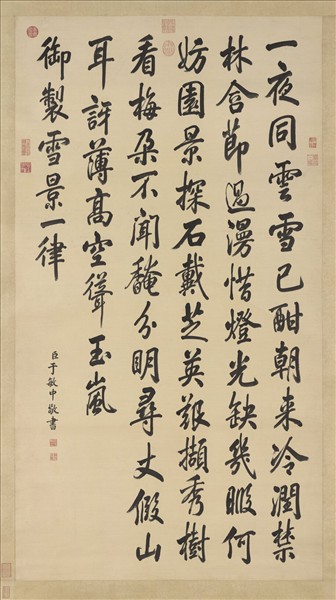 一夜同雲雪已酣朝来冷潤禁
林含節過漫惜燈光缺幾暇何
妨園景探石戴芝英艱擷秀樹
看梅朶不聞馣分明尋丈假山
耳許薄髙空聳玉嵐
御製雪景一律
臣于敏中敬書